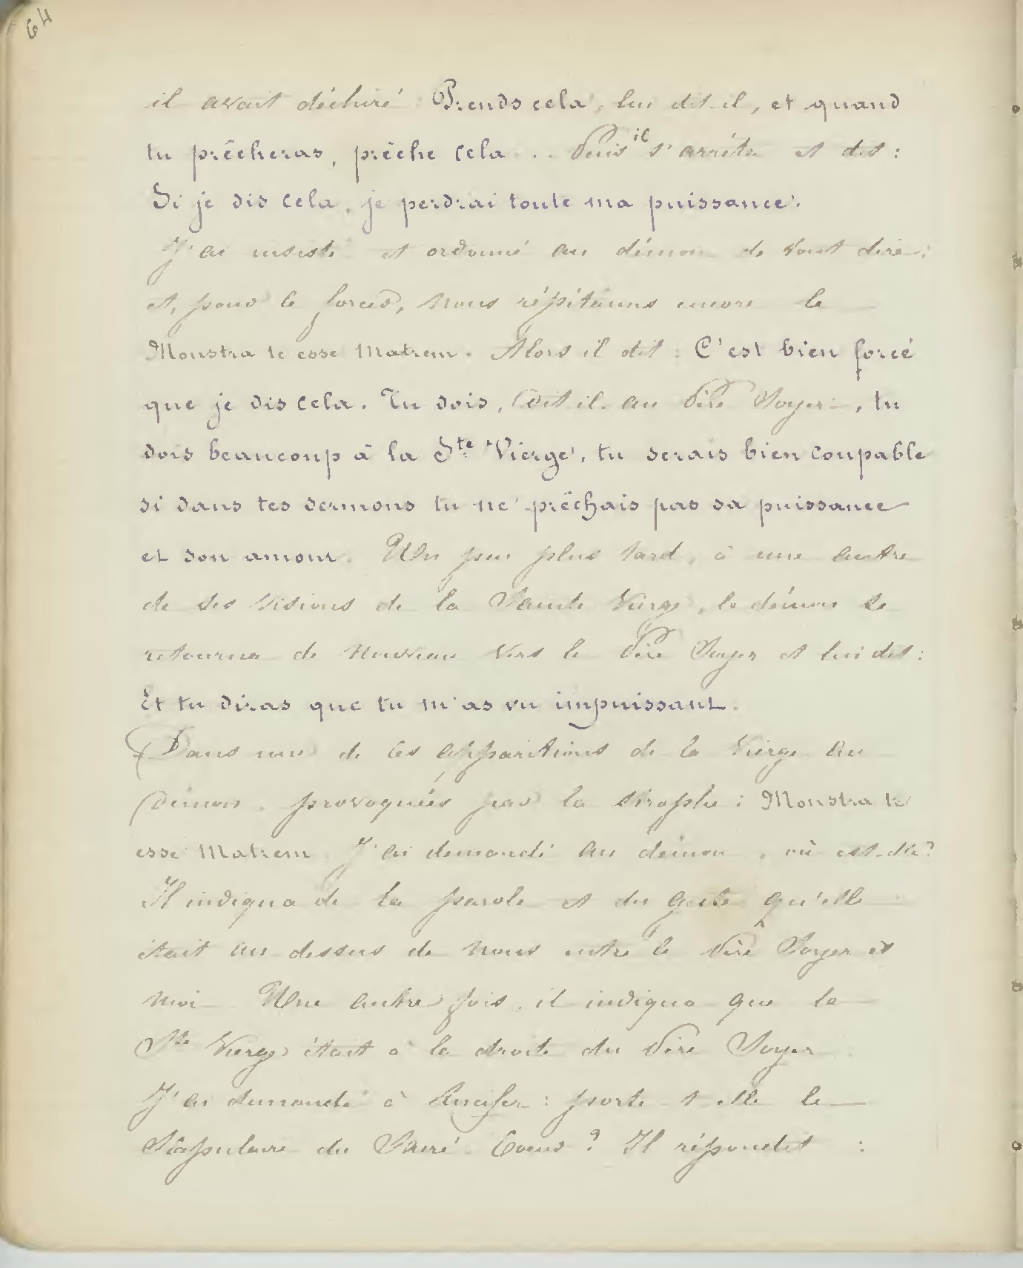 64
il avait déchiré : Prends cela, lui dit-il, et quand
tu prêcheras, prêche cela . . Puis il s'arrêta et dit :
Si je dis cela, je perdrai toute ma puissance.
J'ai insisté et ordonné au démon de tout dire ;
et, pour le forcer, nous répétâmes encore le
Monstra te esse Matrem. Alors il dit : C'est bien forcé
que je dis cela. Tu dois, dit-il au Père Soyer, tu
dois beaucoup à la Ste Vierge, tu serais bien coupable
si dans tes sermons tu ne prêchais pas sa puissance
et son amour. Un peu plus tard, à une autre
de ses visions de la Sainte Vierge, le démon se
retourna de nouveau vers le Père Soyer et lui dit :
Et tu diras que tu m'as vu impuissant.
Dans une de ces apparitions de la Vierge au
démon, provoquées par la strophe : Monstra te
esse Matrem J'ai demandé au démon, où est-elle ?
Il indiqua de la parole et du geste qu'elle
était au dessus de nous entre le Père Soyer et
moi Une autre fois, il indiqua que la
Ste Vierge était à la droite du Père Soyer
J'ai demandé à Lucifer : porte-t-elle le
Scapulaire du Sacré-Coeur ? Il répondit :